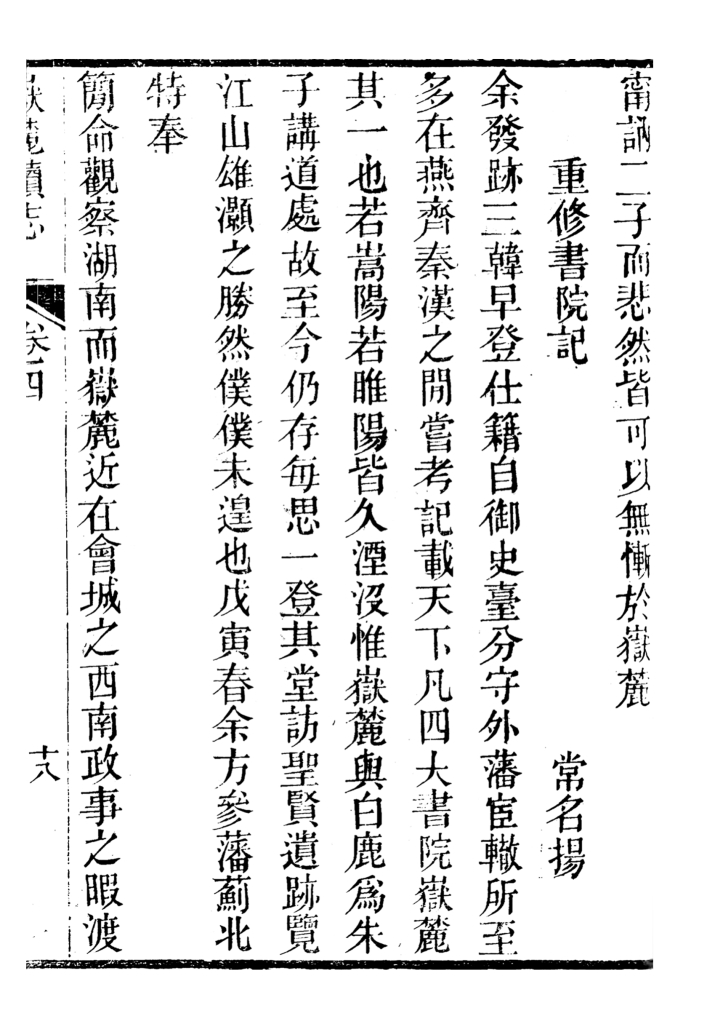 甯訥二子而悲然皆可以無慚於嶽麓
重修書院記　常名揚
余發跡三韓早登仕籍自御史臺分守外藩宦轍所至
多在燕齊秦漢之閒嘗考記載天下凡四大書院嶽麓
其一也若嵩陽若睢陽皆久湮沒惟嶽麓與白鹿爲朱
子講道處故至今仍存每思一登其堂訪聖賢遺跡覽
江山雄灝之勝然僕僕未遑也戊寅春余方參藩薊北
特奉
簡命觀察湖南而嶽麓近在會城之西南政事之暇渡
嶽麓續志　卷四　十八